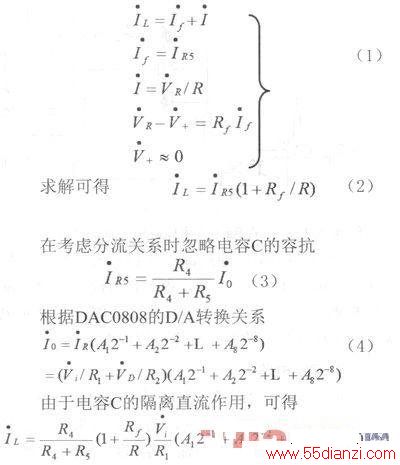 İ_L = İ_f + İ
İ_f = İ_{R5}
İ = V̇_R / R
V̇_R − V̇_+ = R_f İ_f
V̇_+ ≈ 0
(1)
求解可得 İ_L = İ_{R5}(1 + R_f / R) (2)
在考虑分流关系时忽略电容C的容抗
İ_{R5} = \frac{R_4}{R_4 + R_5} İ_0 (3)
根据DAC0808的D/A转换关系
İ_0 = İ_R(A_1 2^{-1} + A_2 2^{-2} + L + A_8 2^{-8})
= (V̇_i / R_1 + V̇_D / R_2)(A_1 2^{-1} + A_2 2^{-2} + L + A_8 2^{-8})
(4)
由于电容C的隔离直流作用，可得
İ_L = \frac{R_4}{R_4 + R_5}(1 + \frac{R_f}{R})\frac{V̇_i}{R_1}(A_1 2^{-1} +
www.55dianzi.com